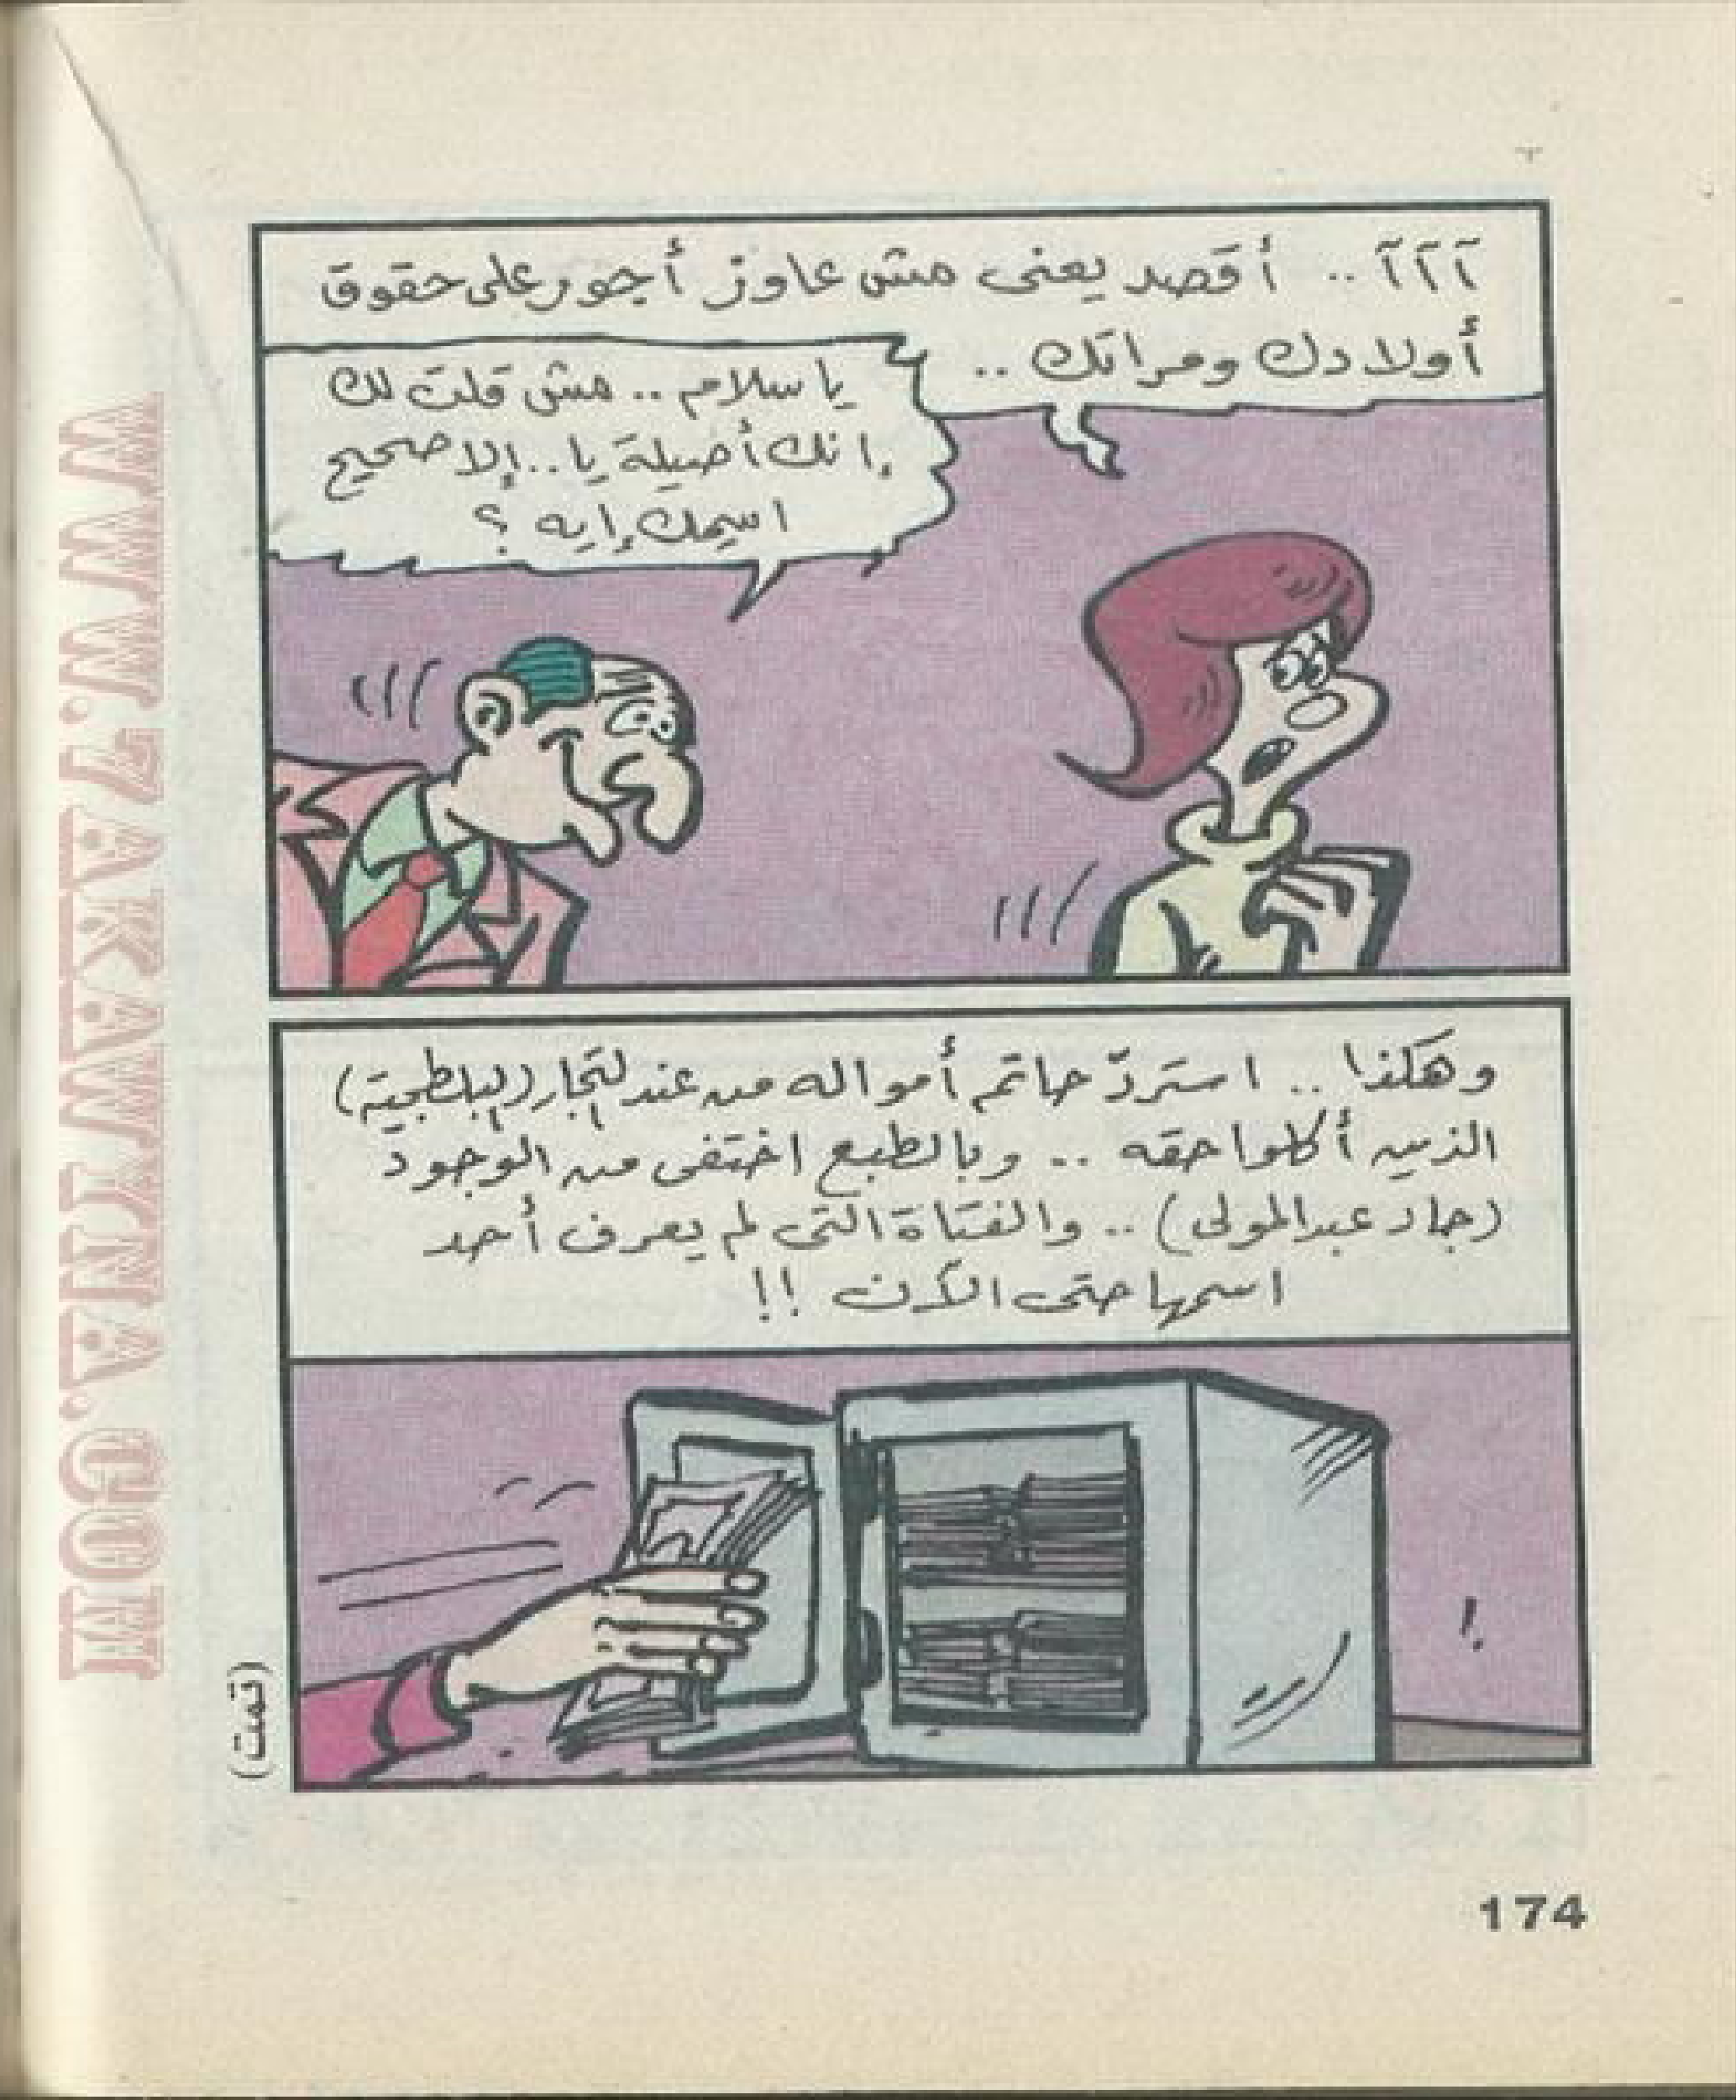 آآآ .. أقصد يعنى مش عاوز أجور على حقوق
أولادك ومراتك ..
يا سلام .. مش قلت لك
إنك أصيلة يا .. إلا صحيح
اسمك إيه ؟
وهكذا .. استردّ حاتم أمواله من عند التجار (البلطجية)
الذين أكلوا حقه .. وبالطبع اختفى من الوجود
(جاد عبدالمولى) .. والفتاة التى لم يعرف أحد
اسمها حتى الآن !!
!
(تمت)
174
WWW.7AKAWITNA.COM